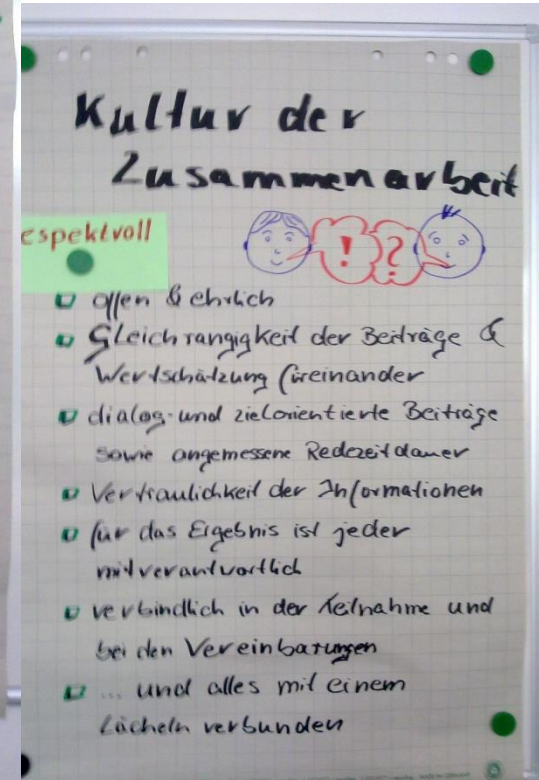 Kultur der
Zusammenarbeit
espektvoll
! ?
offen & ehrlich
Gleichrangigkeit der Beiträge &
Wertschätzung füreinander
dialog- und zielorientierte Beiträge
sowie angemessene Redezeitdauer
Vertraulichkeit der Informationen
für das Ergebnis ist jeder
mitverantwortlich
verbindlich in der Teilnahme und
bei den Vereinbarungen
... und alles mit einem
Lächeln verbunden